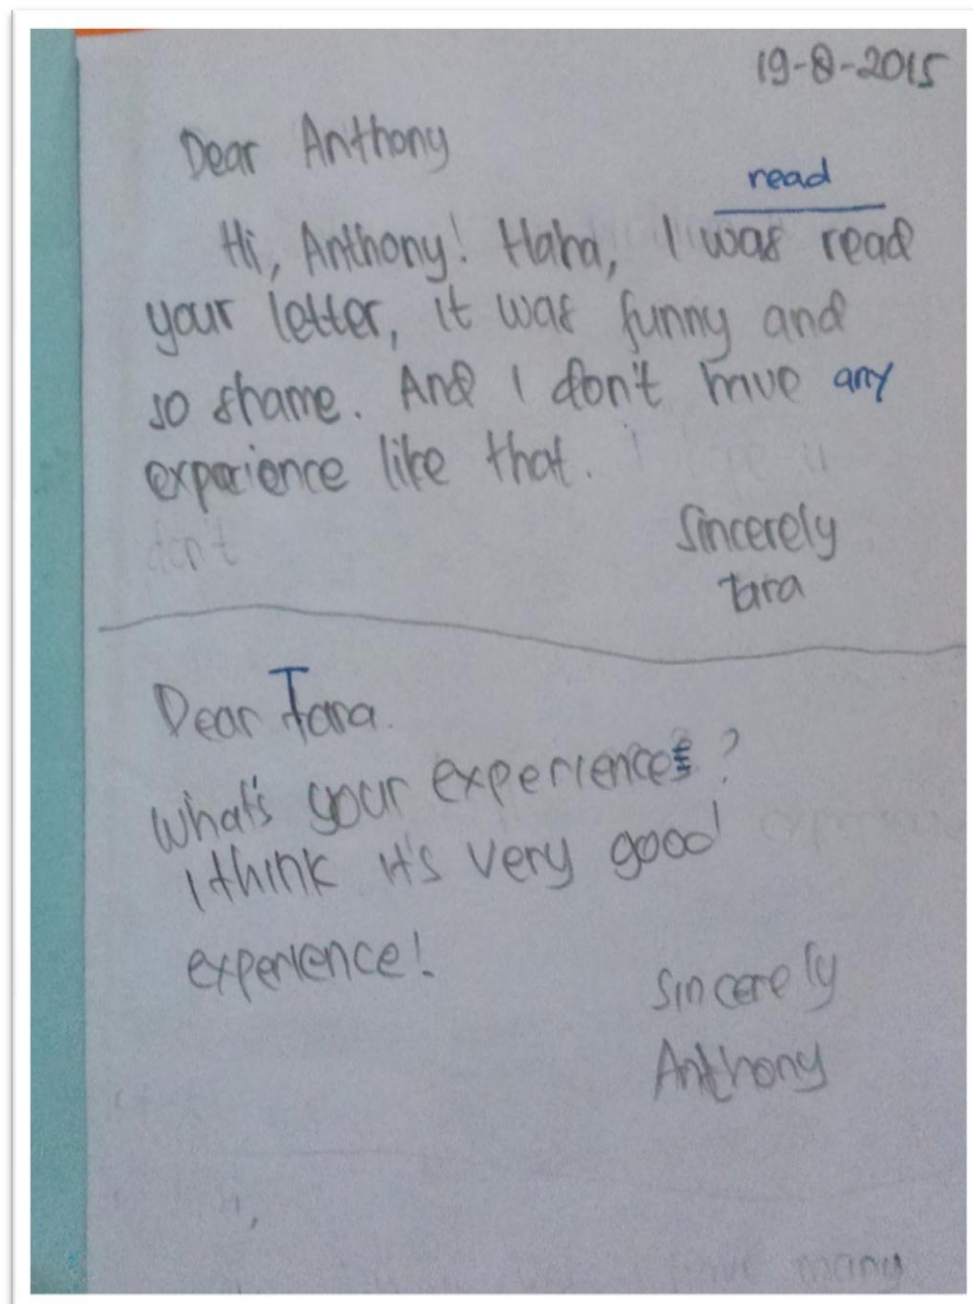 19-8-2015
Dear Anthony
read
Hi, Anthony! Haha, I was read
your letter, it was funny and
so shame. And I don't have any
experience like that.
don't
Sincerely
Tara
Dear Tara.
What's your experiences?
I think it's very good
experience!
Sincerely
Anthony
many